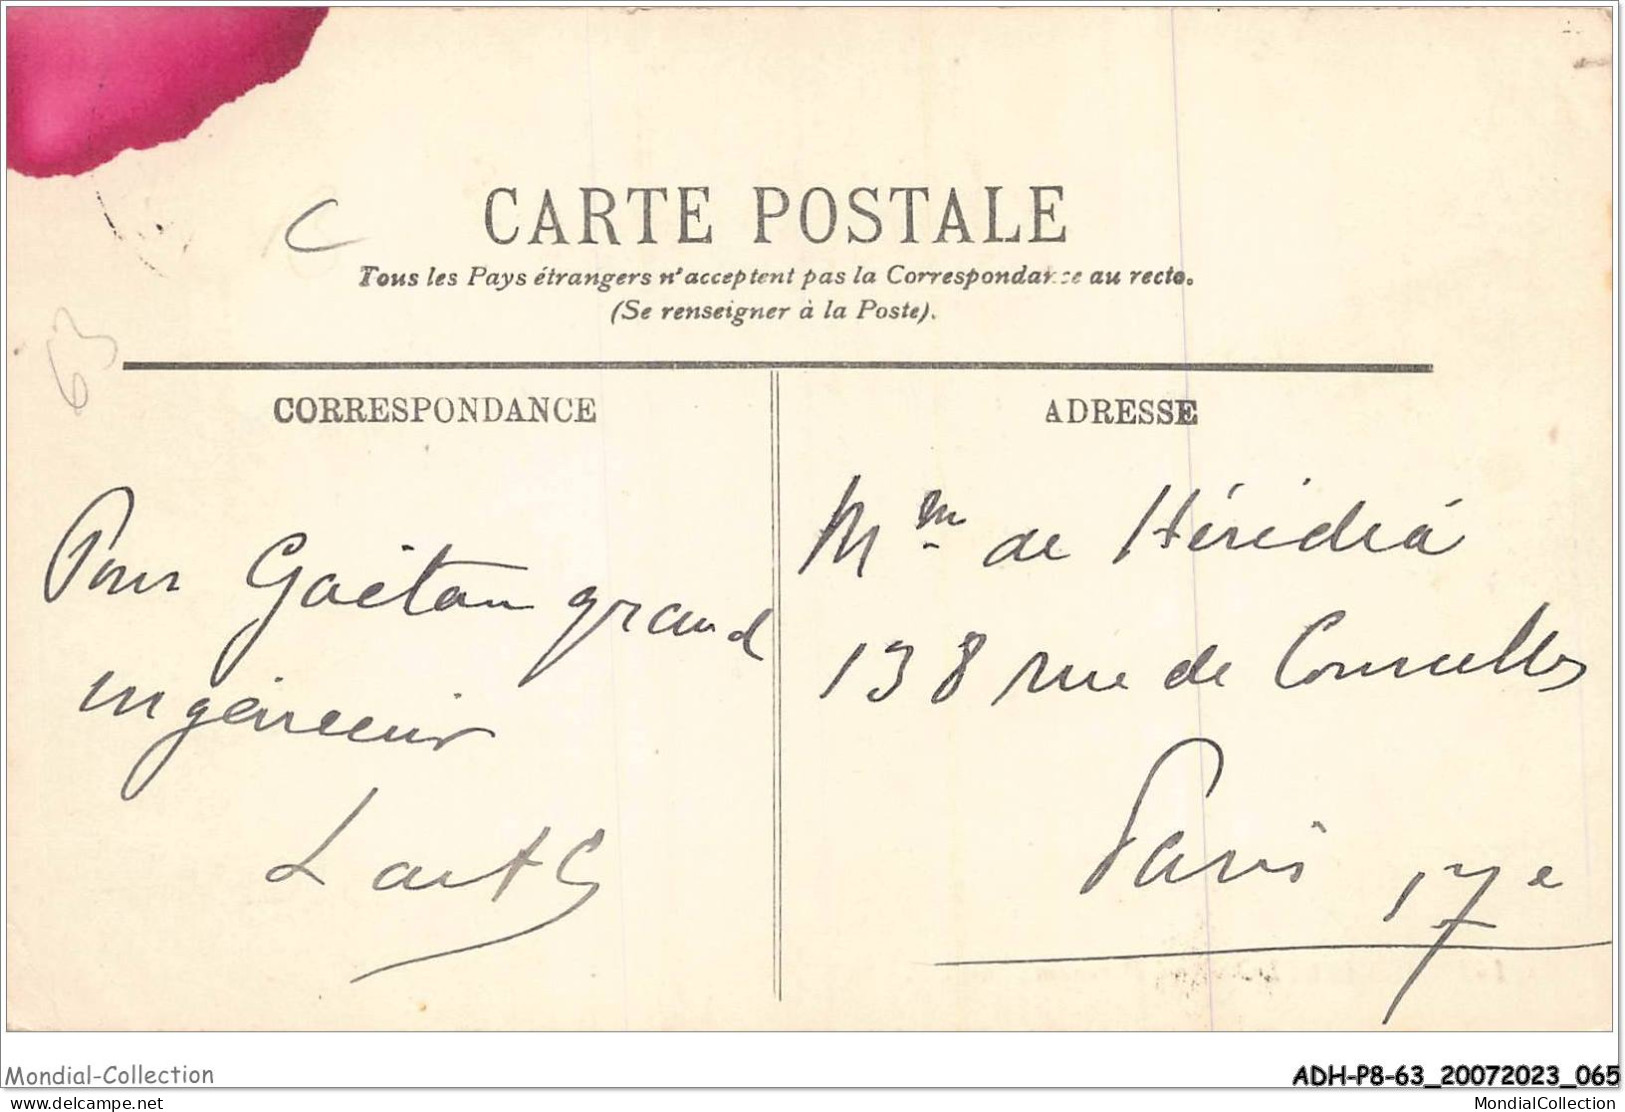 C
CARTE POSTALE
Tous les Pays étrangers n'acceptent pas la Correspondance au recto.
(Se renseigner à la Poste).
63
CORRESPONDANCE
ADRESSE
Pour Gaëtan grand
ingénieur
Mme de Hérédia
138 rue de Courcelles
Paris 17e
Mondial-Collection
ADH-P8-63_20072023_065
www.delcampe.net
MondialCollection